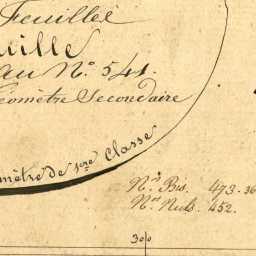 Feuillée
ville
au N.º 541.
Géomètre Secondaire
mètre de 1ère Classe
N.os Bis. 473-36
N.os Nuls. 452.
300